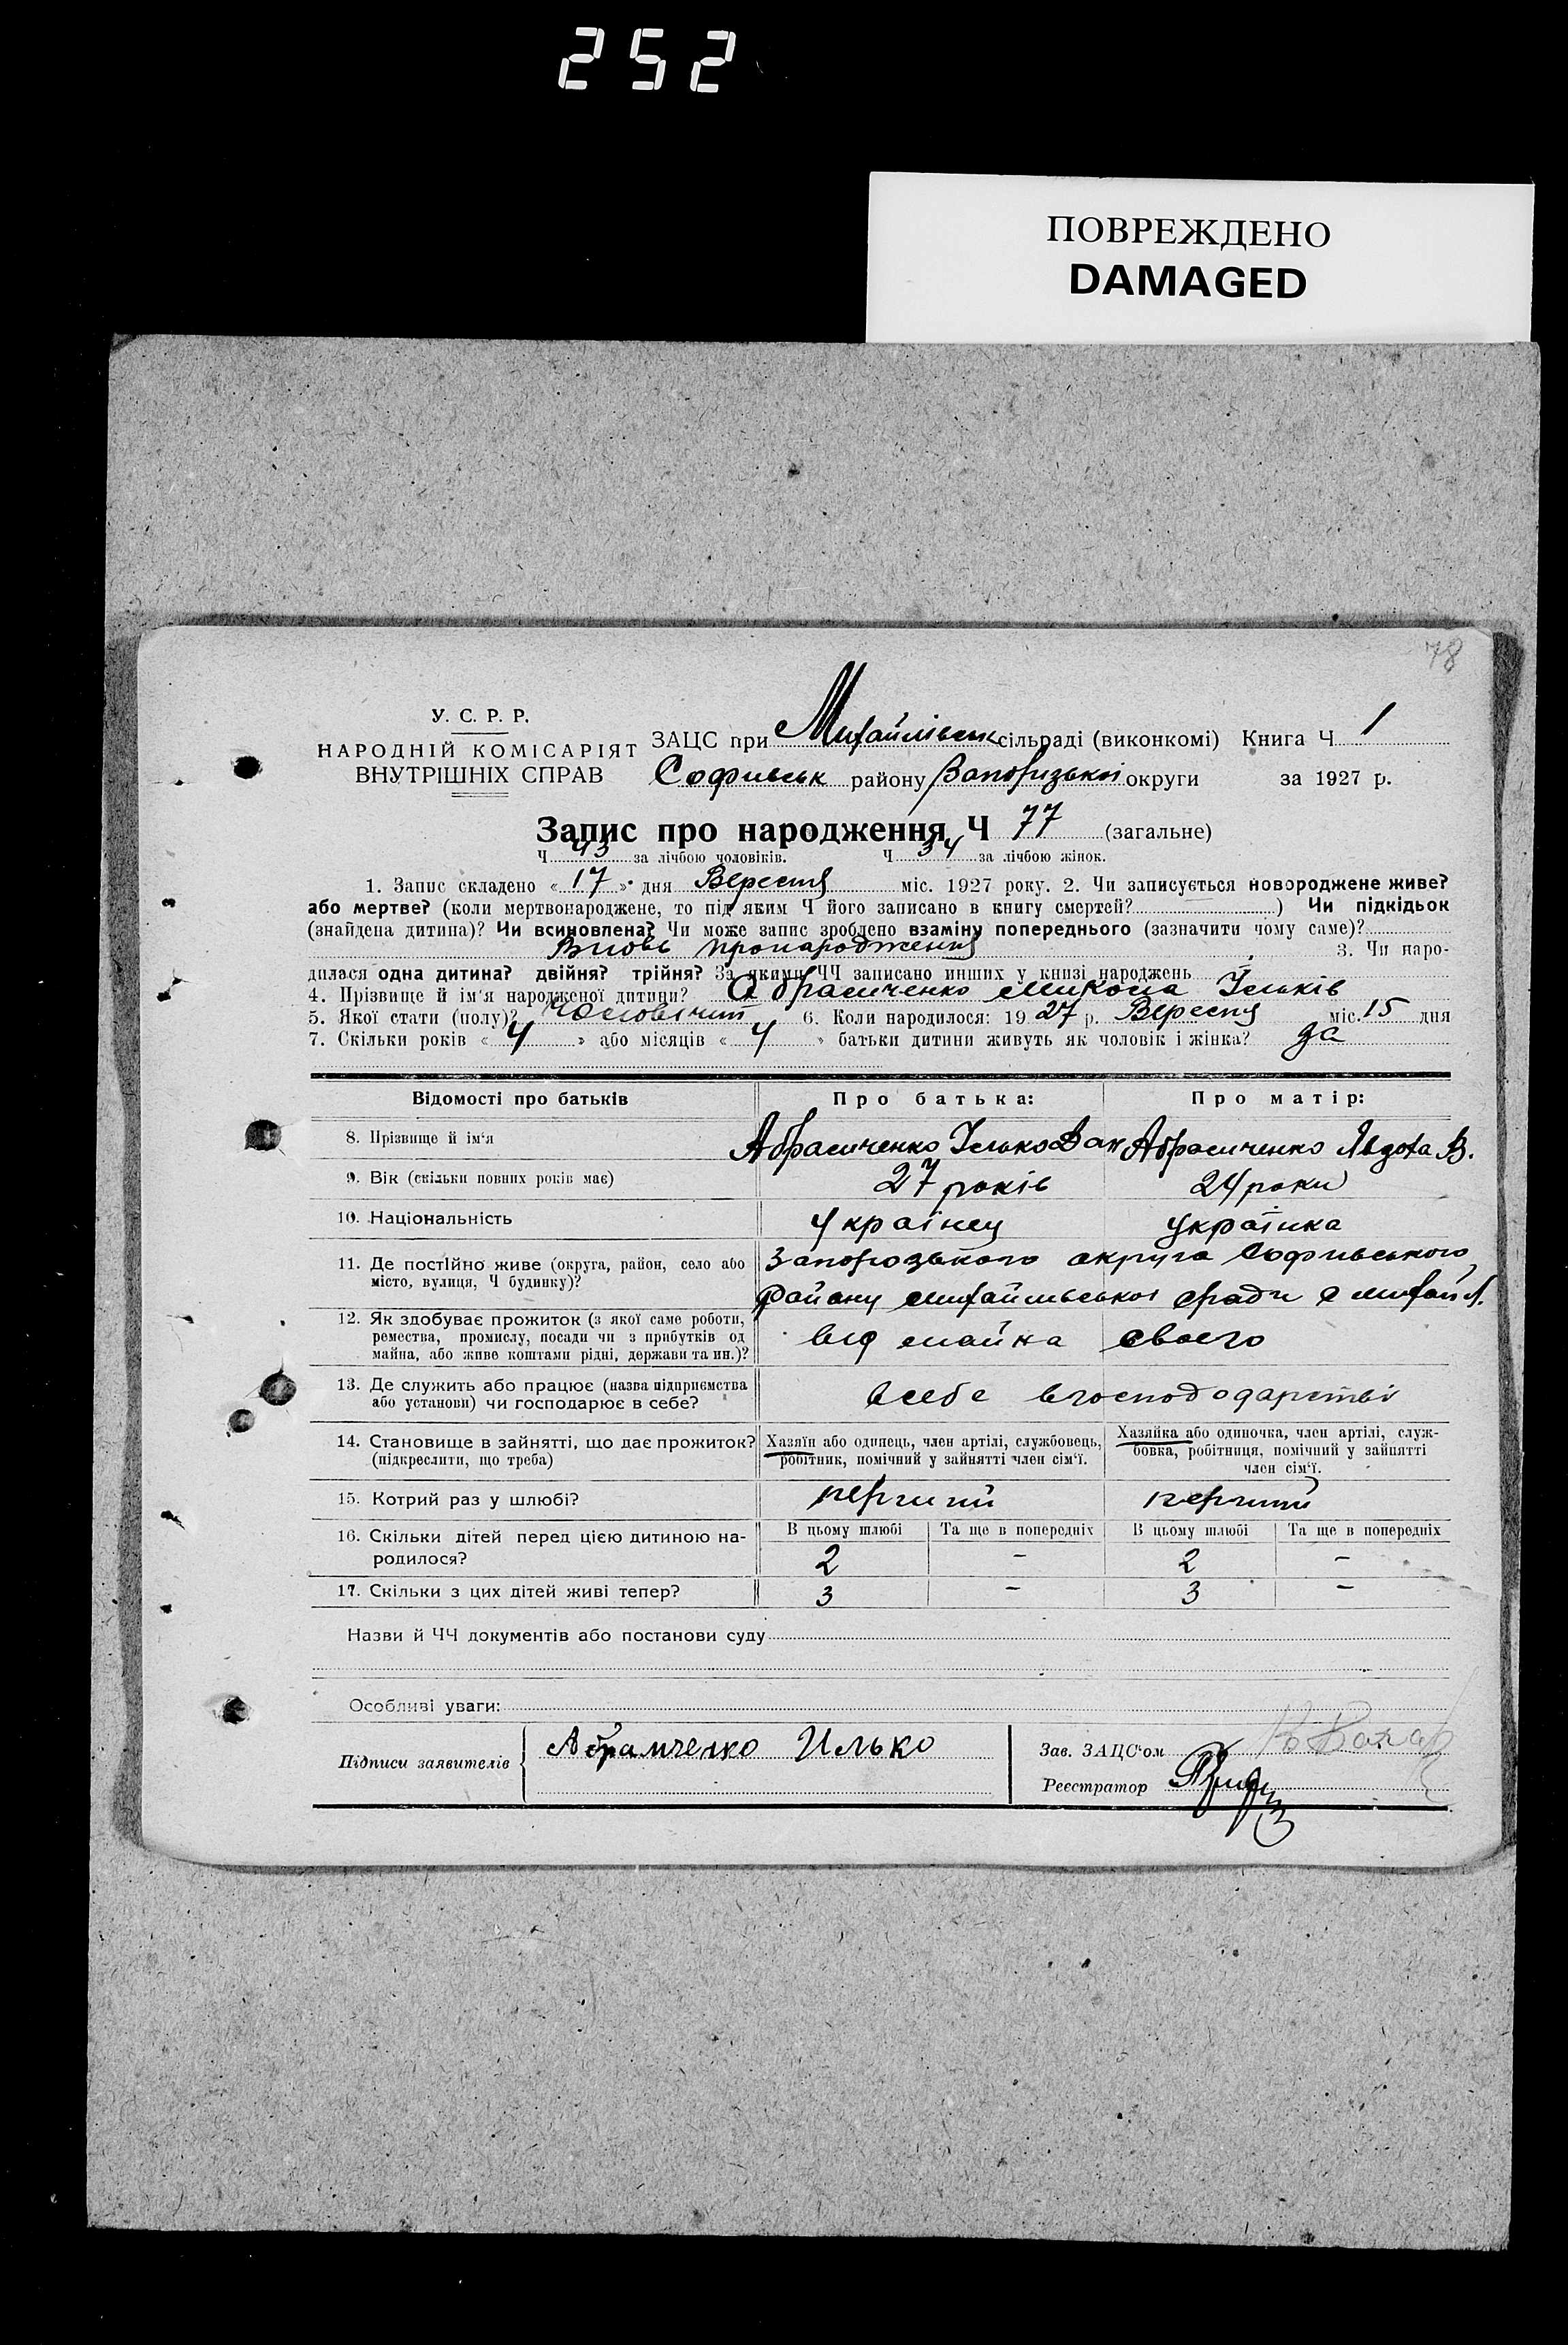 252
ПОВРЕЖДЕНО
DAMAGED
78
У. С. Р. Р.
НАРОДНІЙ КОМІСАРІЯТ
ВНУТРІШНІХ СПРАВ
ЗАЦС при Михайлівськ сільраді (виконкомі) Книга Ч. 1
Софиевськ району Запоризької округи за 1927 р.
Запис про народження Ч 77 (загальне)
Ч 43 за лічбою чоловіків. Ч 34 за лічбою жінок.
1. Запис складено « 17 » дня Вересня міс. 1927 року. 2. Чи записується новороджене живе?
або мертве? (коли мертвонароджене, то під яким Ч його записано в книгу смертей? ) Чи підкідьок
(знайдена дитина)? Чи всиновлена? Чи може запис зроблено взаміну попереднього (зазначити чому саме)?
Вновь пронародження 3. Чи наро-
дилася одна дитина? двійня? трійня? За якими ЧЧ записано инших у книзі народжень
4. Прізвище й ім'я народженої дитини? Абрамченко Микола Ільків
5. Якої стати (полу)? 6. Коли народилося: 19 27 р. Вересня міс. 15 дня
7. Скільки років « 4 » або місяців « 4 » батьки дитини живуть як чоловік і жінка? да
Відомості про батьків Про батька: Про матір:
8. Прізвище й ім'я Абрамченко Ілько Абрамченко Явдоха В.
9. Вік (скільки повних років має) 27 років 24 роки
10. Національність Українец Українка
11. Де постійно живе (округа, район, село або Запорозького округа Софиевського
місто, вулиця, Ч будинку)? району Михайлівської сради с Михайл.
12. Як здобуває прожиток (з якої саме роботи,
ремества, промислу, посади чи з прибутків од від майна своего
майна, або живе коштами рідні, держави та ин.)?
13. Де служить або працює (назва підприємства всебе вгоспододарстві
або установи) чи господарює в себе?
14. Становище в зайнятті, що дає прожиток? Хазяїн або одинець, член артілі, службовець, Хазяйка або одиночка, член артілі, служ-
(підкреслити, що треба) робітник, помічний у зайнятті член сім'ї. бовка, робітниця, помічний у зайнятті
член сім'ї.
15. Котрий раз у шлюбі? перший перший
16. Скільки дітей перед цією дитиною на- В цьому шлюбі Та ще в попередніх В цьому шлюбі Та ще в попередніх
родилося? 2 – 2 –
17. Скільки з цих дітей живі тепер? 3 – 3 –
Назви й ЧЧ документів або постанови суду
Особливі уваги:
Підписи заявителів Абрамченко Илько
Зав. ЗАЦС'ом
Реєстратор